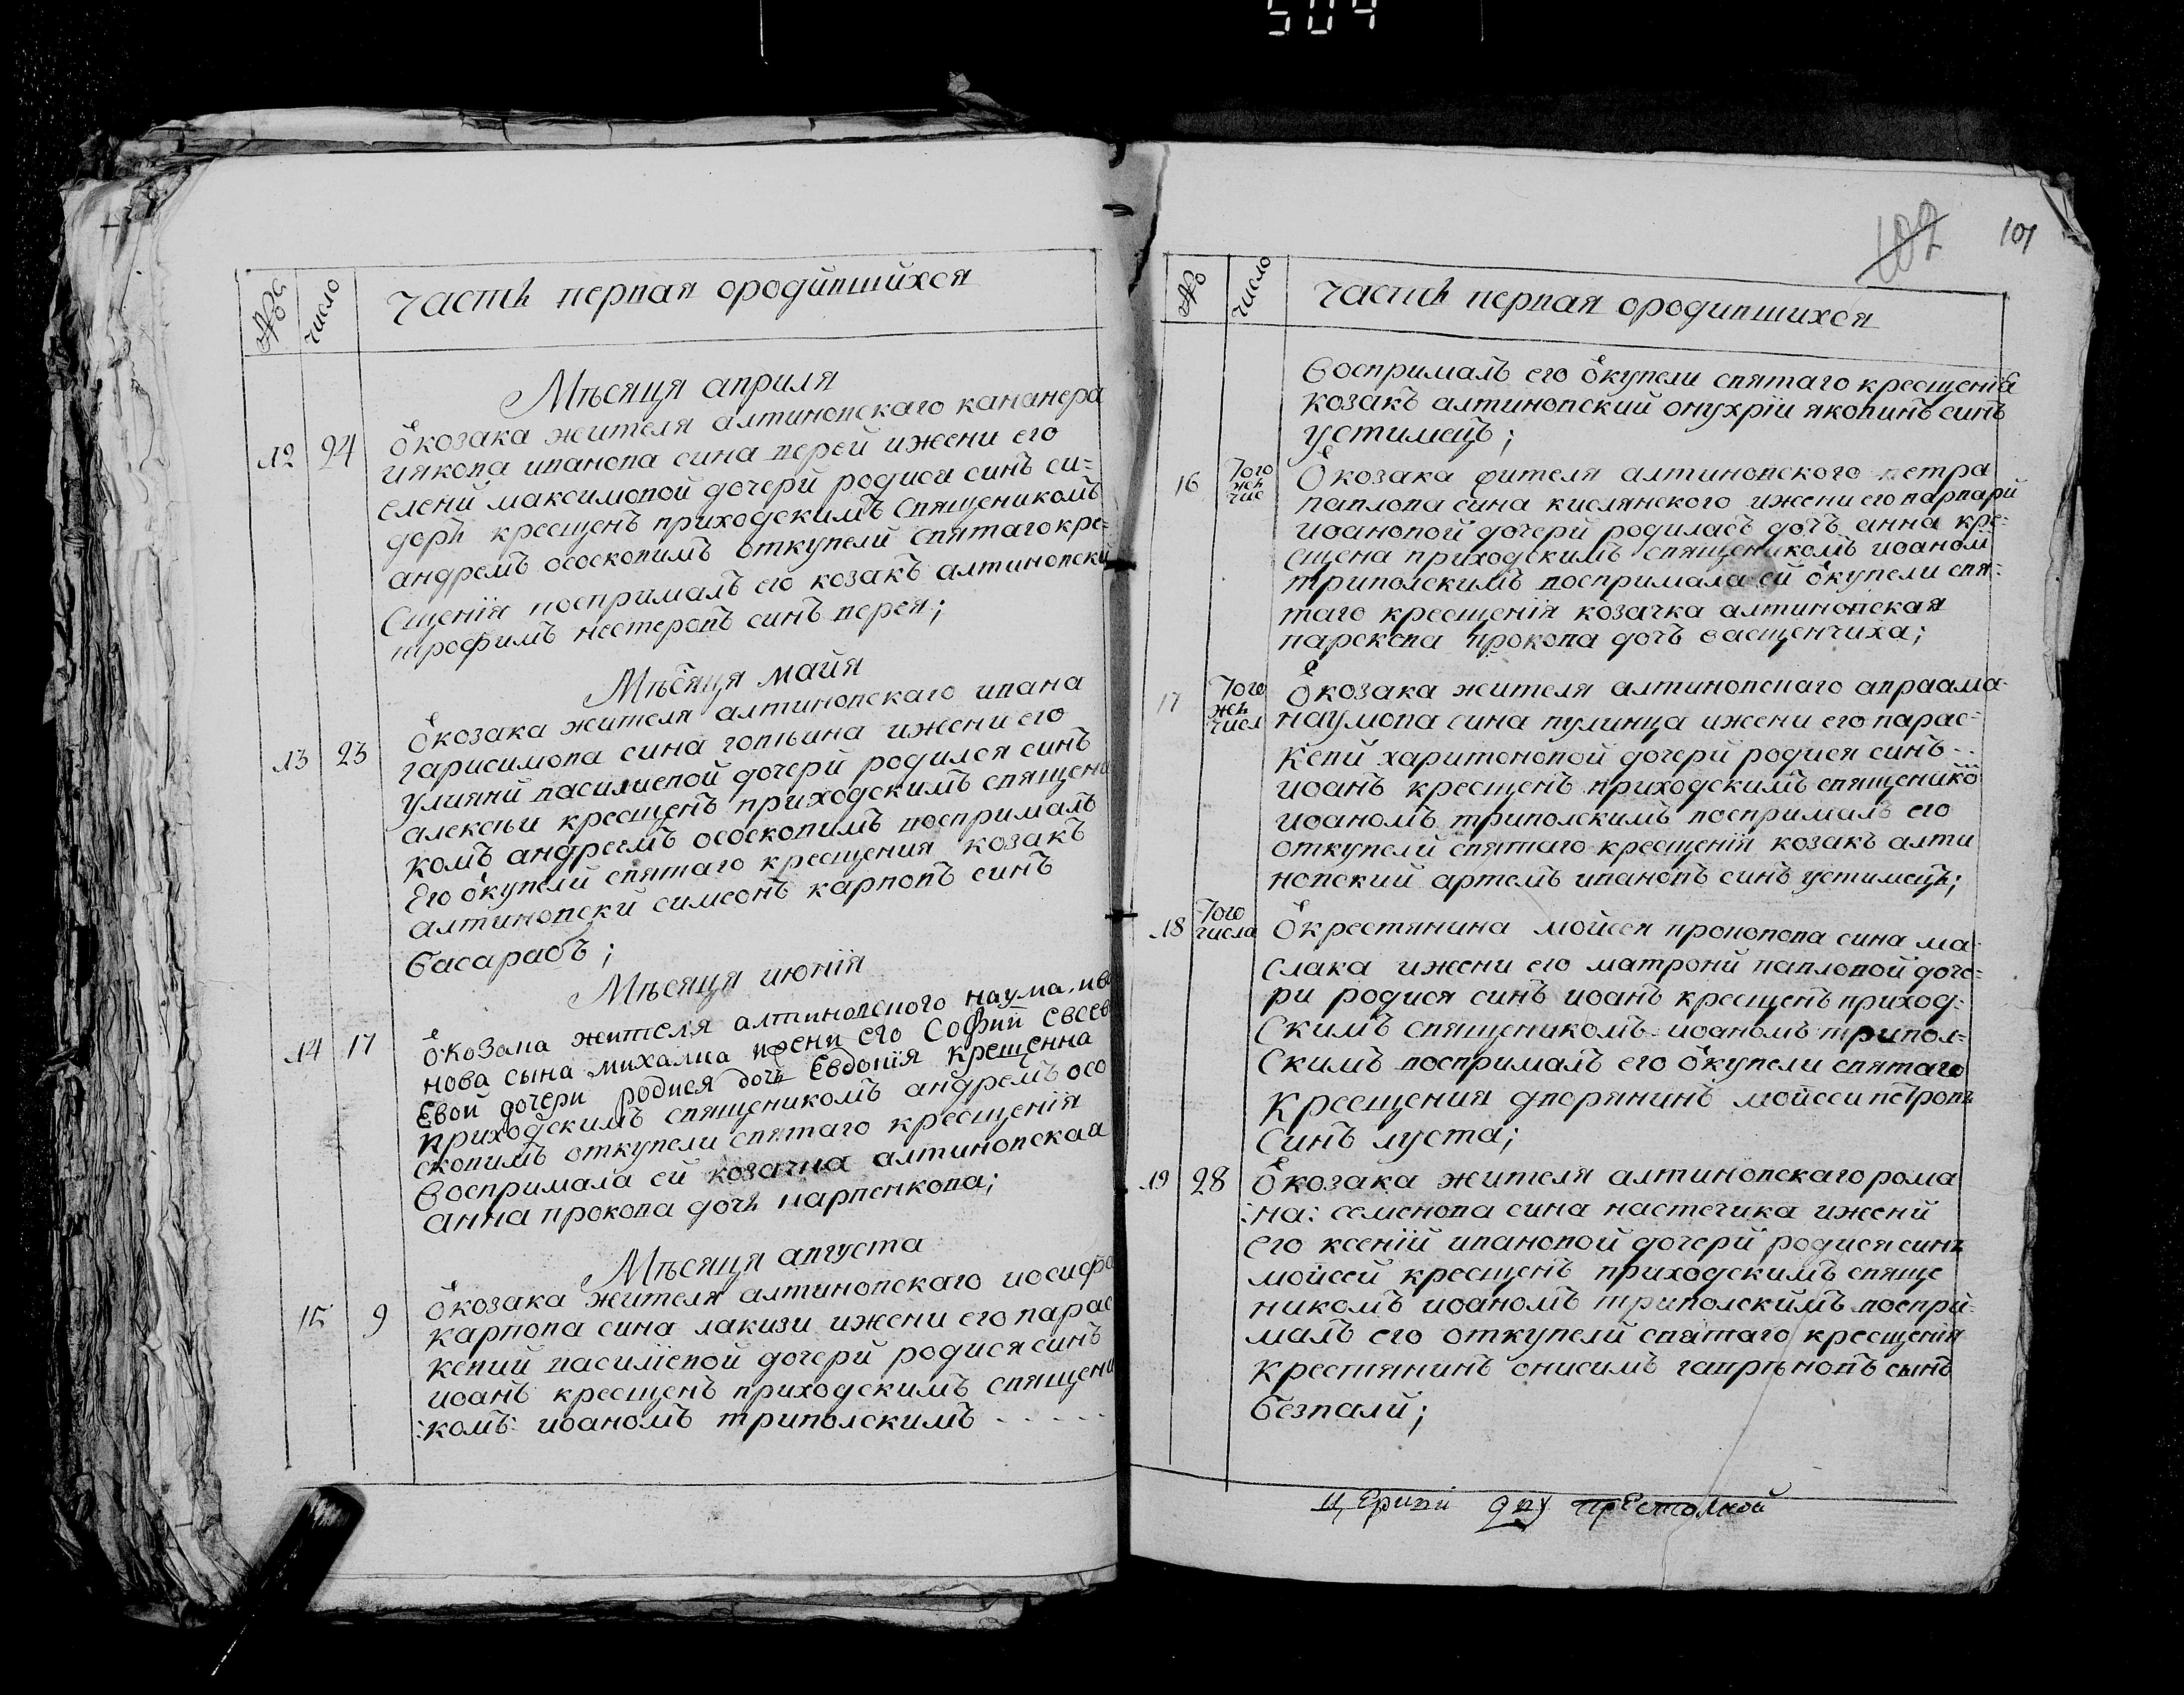 504
102 101
№ число Часть первая ородившихся
Мѣсяця априля
12 24 ѿ козака жителя алтиновскаго кананера
иякова иванова сина верей ижени его
елений максимовой дочерй родися синъ си=
доръ крещенъ приходскимъ священикомъ
андремъ ососковимъ откупели святаго кре=
щения воспрималъ его козакъ алтиновски
трофимъ нестеровъ синъ верея;
Мѣсяця майя
13 23 ѿ козака жителя алтиновскаго ивана
гарисимова сина гопьина ижени его
улияний василиевой дочерй родился синъ
алексѣи крещенъ приходскимъ священи
комъ андреемъ ососковимъ воспрималъ
его ѿ купели святаго крещения козакъ
алтиновскй симеонъ карповъ синъ
басарабъ;
Мѣсяця июнія
14 17 ѿ козака жителя алтиновсного наума ива
нова сына михалка ижени его Софии Евсев
Евой дочери родися дочь Евдокія крещенна
приходскимъ священикомъ андремъ осо
сковимъ откупели святаго крещенія
воспримала ей козачка алтиновская
анна прокопа дочь карпенкова;
Мѣсяця августа
15 9 ѿ козака жителя алтиновскаго иосифа
карпова сина лакизи ижени его парас
кевий василіевой дочерй родися синъ
иоанъ крещенъ приходскимъ священи
:комъ: иоаномъ триполскимъ - - - - -
№ число Часть первая ородившихся
воспрималъ его ѿ купели святаго крещенія
козакъ алтиновский онухрїи яковинъ синъ
устимецъ;
16 Того жъ чис ѿ козака жителя алтиновского петра
павлова сина кислянского ижени его варварй
иоановой дочерй родиласъ дочъ анна кре=
щена приходскимъ священикомъ иоаном
триполскимъ воспримала ей ѿ купели свя=
таго крещенія козачка алтиновская
параскева прокопа дочъ ващенчиха;
17 Того жъ числ ѿ козака жителя алтиновскаго авраама
наумова сина пулинца ижени его парас=
кевй харитоновой дочерй родися синъ - -
иоанъ крещенъ приходскимъ священико
иоаномъ триполскимъ воспрималъ его
откупелй святаго крещенія козакъ алти
новский артемъ ивановъ синъ устимецъ;
18 Того числа ѿ крестянина мойсея проновова сина ма
слака ижени его матронй павловой доче=
ри родися синъ иоанъ крещенъ приход=
скимъ священикомъ иоаномъ трипол=
скимъ воспрималъ его ѿ купели святаго
крещения дворянинъ мойсеи петровъ
синъ луста;
19 28 ѿ козака жителя алтиновскаго рома
:на: семенова сина настечика ижени
его ксений ивановой дочерй родися синъ
мойсей крещенъ приходскимъ свяще
никомъ иоаномъ триполскимъ воспри=
малъ его откупелй святаго крещенія
крестиянинъ онисимъ гаврѣновъ сынъ
безпалй;
ц Еркви дву прЕстолной